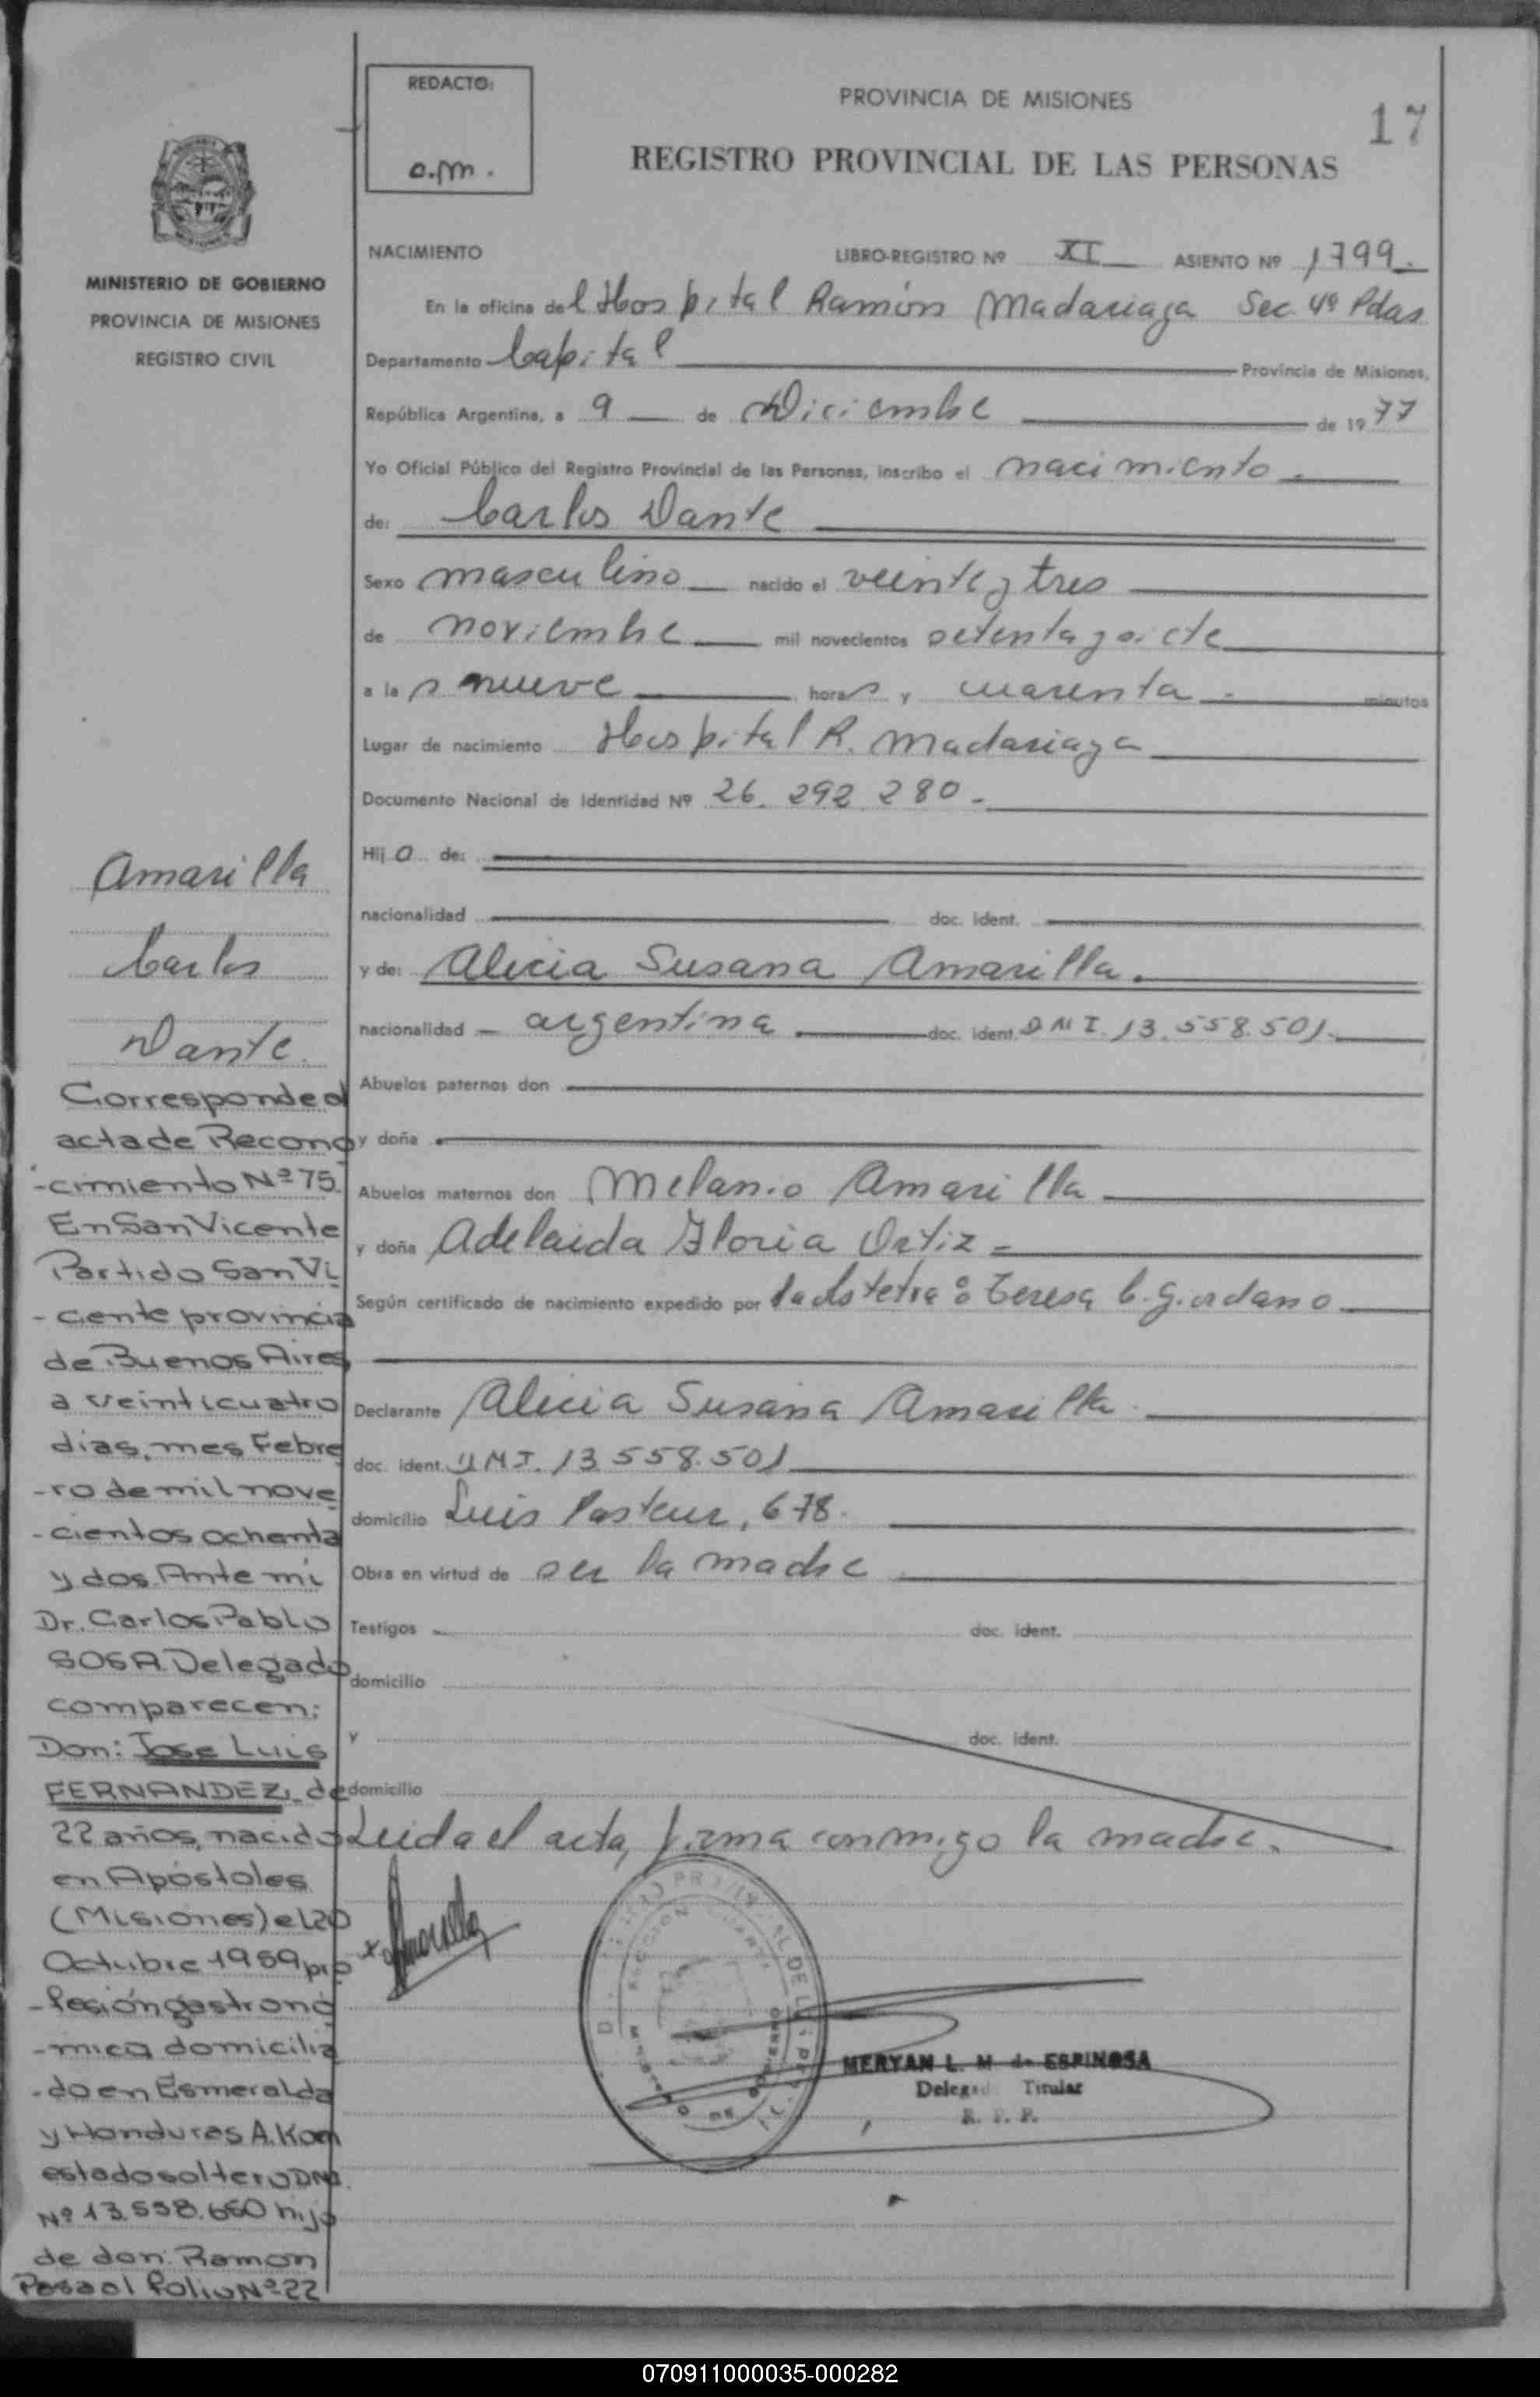 REDACTO:
a.m.
PROVINCIA DE MISIONES
17
REGISTRO PROVINCIAL DE LAS PERSONAS
MINISTERIO DE GOBIERNO
PROVINCIA DE MISIONES
REGISTRO CIVIL
NACIMIENTO LIBRO-REGISTRO Nº XI ASIENTO Nº 1799.
En la oficina del Hospital Ramón Madariaga Sec. 4ª Pdas
Departamento Capital Provincia de Misiones,
República Argentina, a 9 de Diciembre de 1977
Yo Oficial Público del Registro Provincial de las Personas, inscribo el nacimiento.
de: Carlos Dante
Sexo masculino nacido el veinte y tres
de noviembre mil novecientos setenta y siete
a las nueve horas y cuarenta - minutos
Lugar de nacimiento Hospital R. Madariaga
Documento Nacional de Identidad Nº 26.292.280-
Hijo de:
nacionalidad doc. ident.
y de: Alicia Susana Amarilla.
nacionalidad - argentina doc. ident. DNI. 13.558.501.
Abuelos paternos don
y doña
Abuelos maternos don Melanio Amarilla
y doña Adelaida Gloria Ortiz -
Según certificado de nacimiento expedido por la obstetra: Teresa C. Giordano
Declarante Alicia Susana Amarilla.
doc. ident. DNI. 13.558.501
domicilio Luis Pasteur, 678.
Obra en virtud de ser la madre
Testigos doc. ident.
domicilio
y doc. ident.
domicilio
Leida el acta, firma conmigo la madre.
x Amarilla
MERYAN L. M. de ESPINOSA
Delegad Titular
R. P. P.
Amarilla
Carlos
Dante.
Corresponde al
acta de Recono
-cimiento Nº 75.
En San Vicente
Partido San Vi
-cente provincia
de Buenos Aires
a veinticuatro
dias, mes Febre
-ro de mil nove
-cientos ochenta
y dos. Ante mi
Dr. Carlos Pablo
SOSA Delegado
comparecen:
Don: Jose Luis
FERNANDEZ, de
22 años, nacido
en Apóstoles
(Misiones) el 20
Octubre 1959 pro
-fesión gastronó
-mica domicilia
-do en Esmeralda
y Honduras A. Korn
estado soltero DNI.
Nº 13.558.660 hijo
de don: Ramon
Pasa al folio Nº 22
070911000035-000282